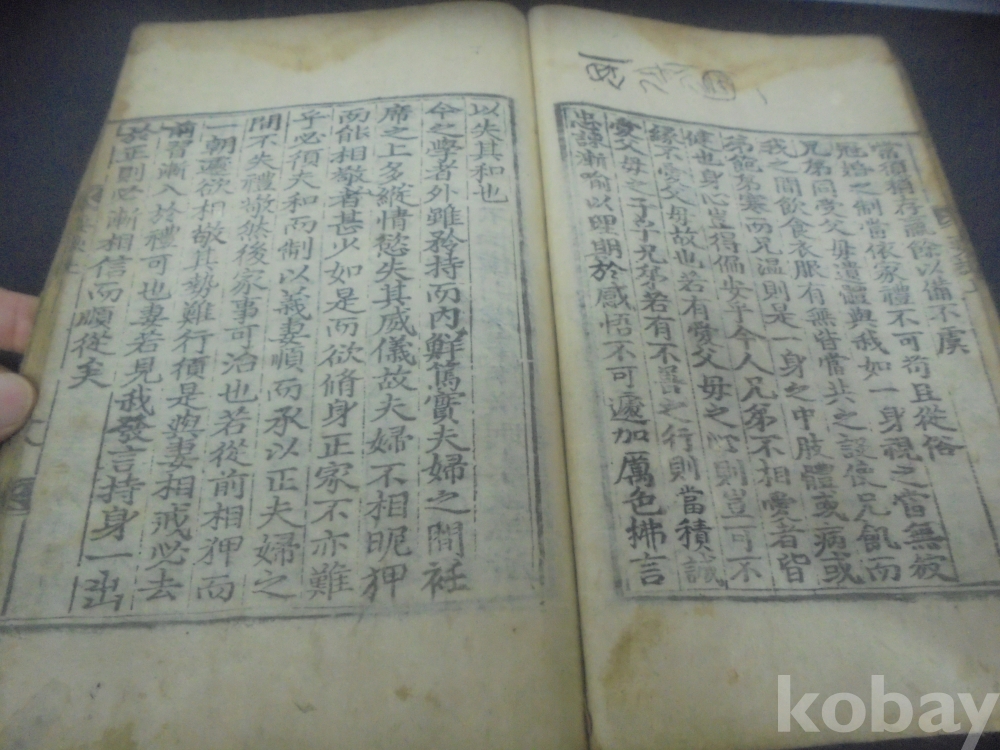 當稍存羸餘以備不虞
冠婚之制當依家禮不可苟且從俗
兄弟同受父母遺體與我如一身視之當無彼
我之間飮食衣服有無皆當共之設使兄飢而
弟飽弟寒而兄溫則是一身之中肢體或病或
健也身心豈得偏安乎今人兄弟不相愛者皆
緣不愛父母故也若有愛父母之心則豈可不
愛父母之子乎兄弟若有不善之行則當積誠
忠諫漸喻以理期於感悟不可遽加厲色拂言
以失其和也
今之學者外雖矜持而內鮮篤實夫婦之間衽
席之上多縱情慾失其威儀故夫婦不相昵狎
而能相敬者甚少如是而欲脩身正家不亦難
乎必須夫和而制以義妻順而承以正夫婦之
間不失禮敬然後家事可治也若從前相狎而
一朝遽欲相敬其勢難行須是與妻相戒必去
前習漸入於禮可也妻若見我發言持身一出
於正則必漸相信而順從矣
kobay